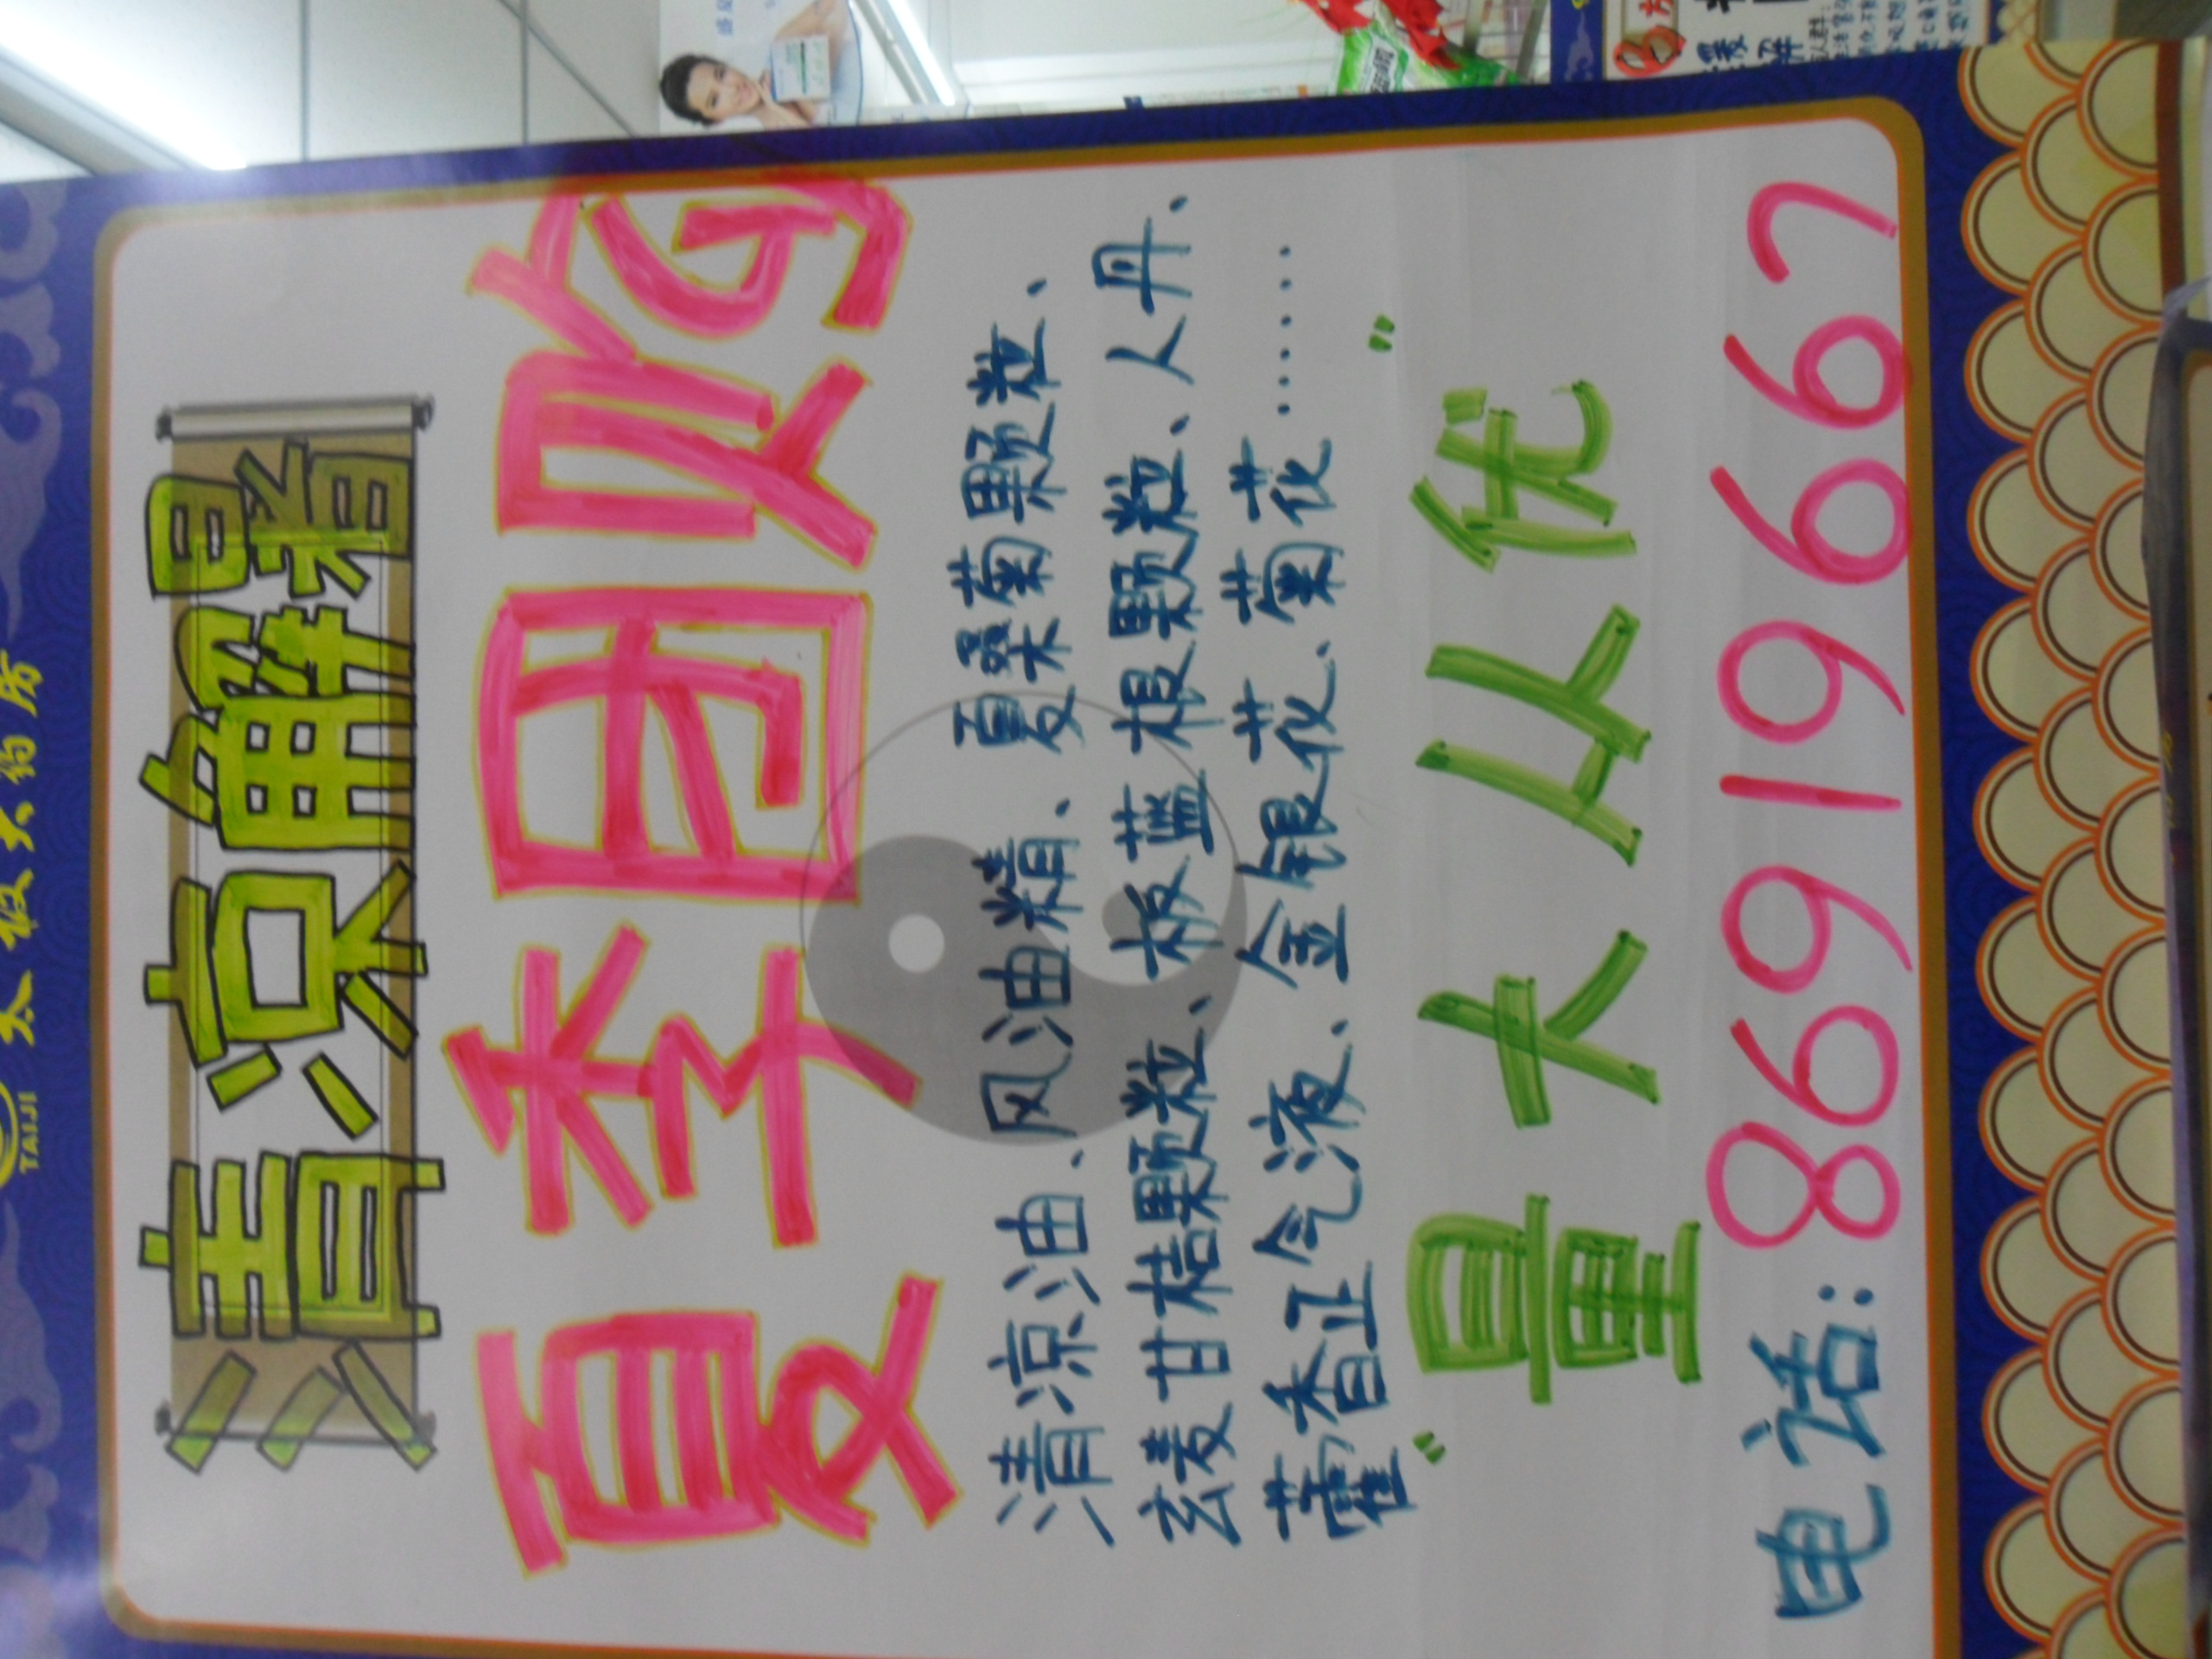 TAIJI 太极大药房
清凉解暑
夏季团购
清凉油、风油精、夏桑菊颗粒、
玄麦甘桔颗粒、板蓝根颗粒、人丹、
藿香正气液、金银花、菊花……
“量大从优”
电话:86919667